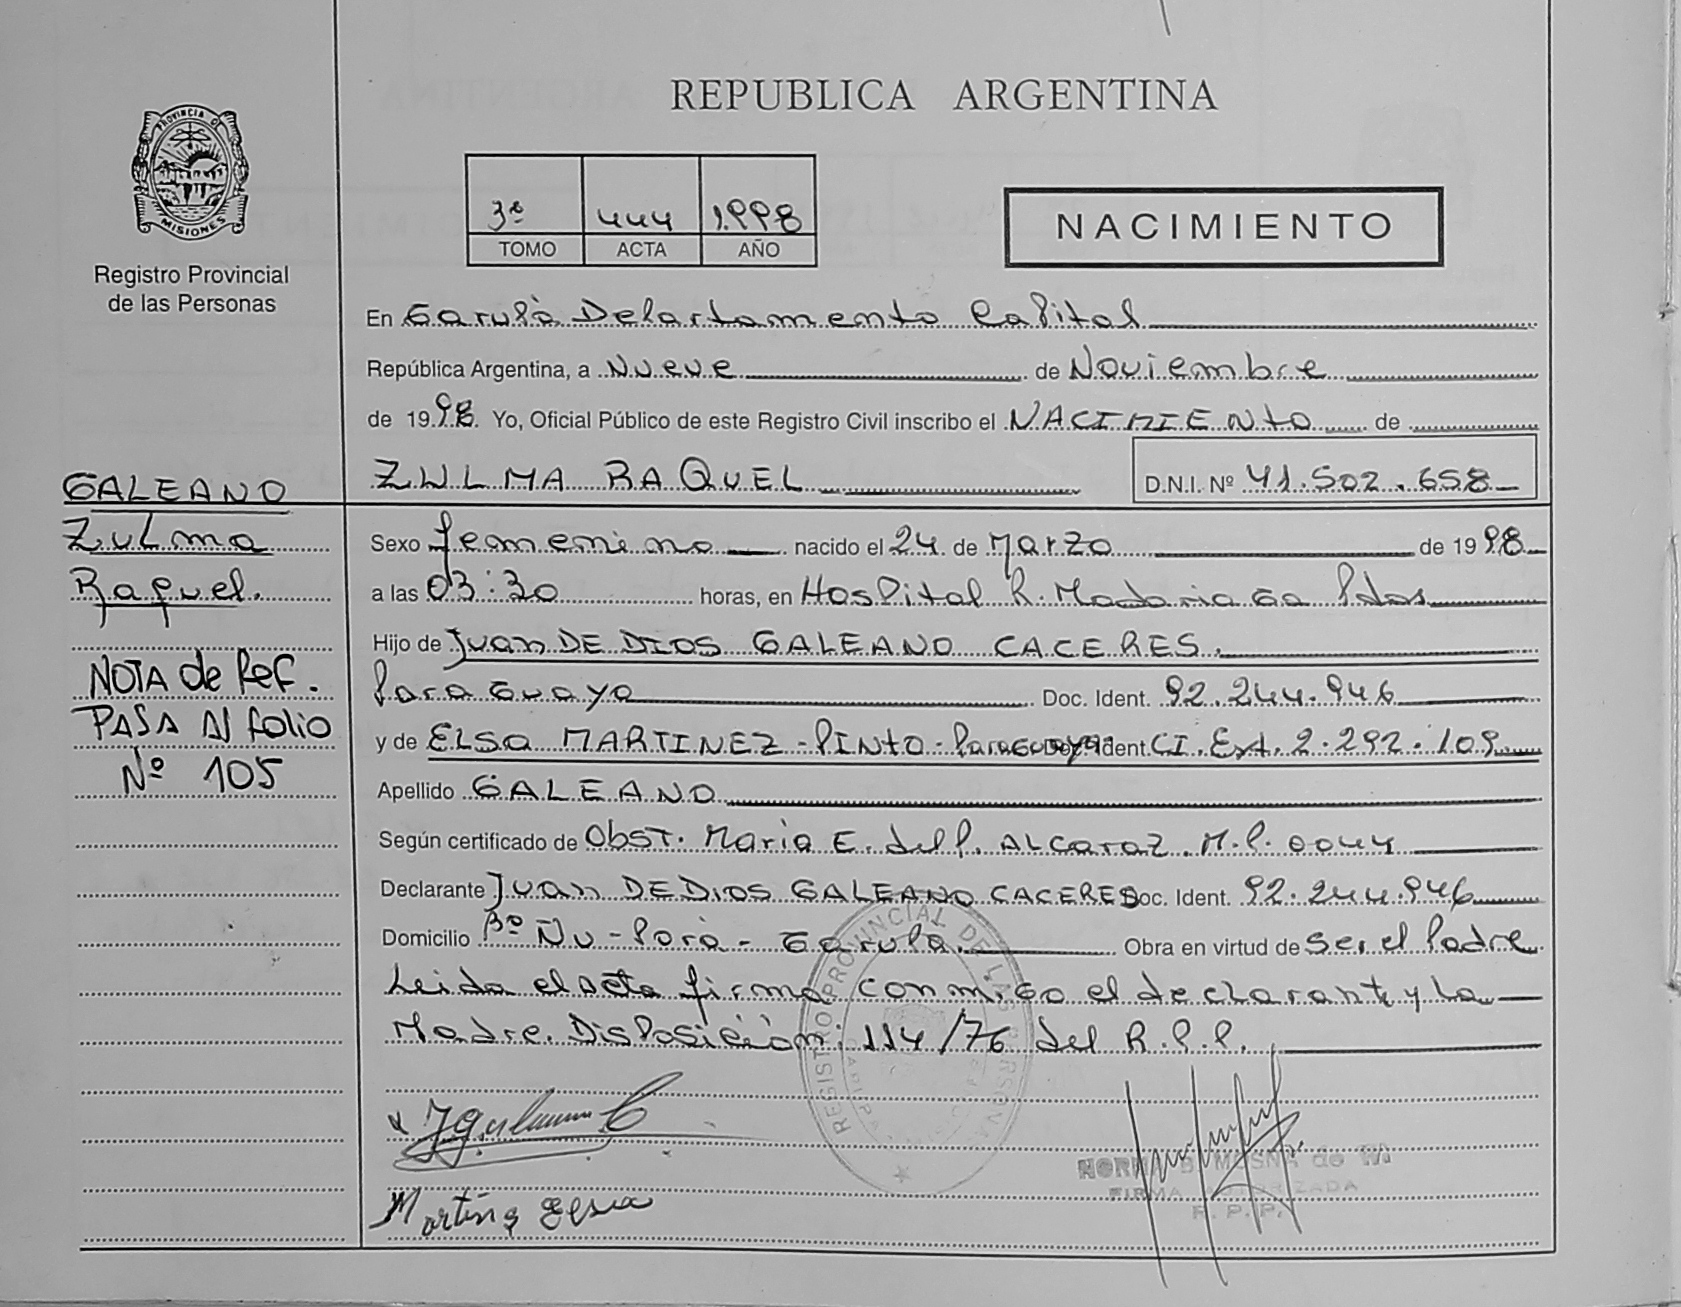 REPUBLICA ARGENTINA
PROVINCIA DE MISIONES
Registro Provincial
de las Personas
3º 444 1.998
TOMO ACTA AÑO
NACIMIENTO
En Garupá Departamento Capital
República Argentina, a Nueve de Noviembre
de 1998. Yo, Oficial Público de este Registro Civil inscribo el NACIMIENTO de
ZULMA RAQUEL D.N.I. Nº 41.502.658
GALEANO
Zulma
Raquel.
NOTA de Ref.
PASA Al folio
Nº 105
Sexo femenino nacido el 24 de Marzo de 1998
a las 03:30 horas, en Hospital R. Madariaga Pdas
Hijo de Juan DE DIOS GALEANO CACERES.
Paraguayo Doc. Ident. 92.244.946
y de ELSA MARTINEZ - PINTO - Paraguaya Doc. Ident. CI. Ext. 2.292.109
Apellido GALEANO
Según certificado de Obst. Maria E. del P. ALCARAZ M.P. 0044
Declarante Juan DE DIOS GALEANO CACERES Doc. Ident. 92.244.946
Domicilio Bº Ñu - Porá - Garupá. Obra en virtud de ser el Padre
Leida el acta firma conmigo el declarante y la
Madre. Disposición: 114/76 del R.P.P.
REGISTRO PROVINCIAL DE LAS PERSONAS
Martinez Elsa
FIRMA AUTORIZADA
R. P. P.